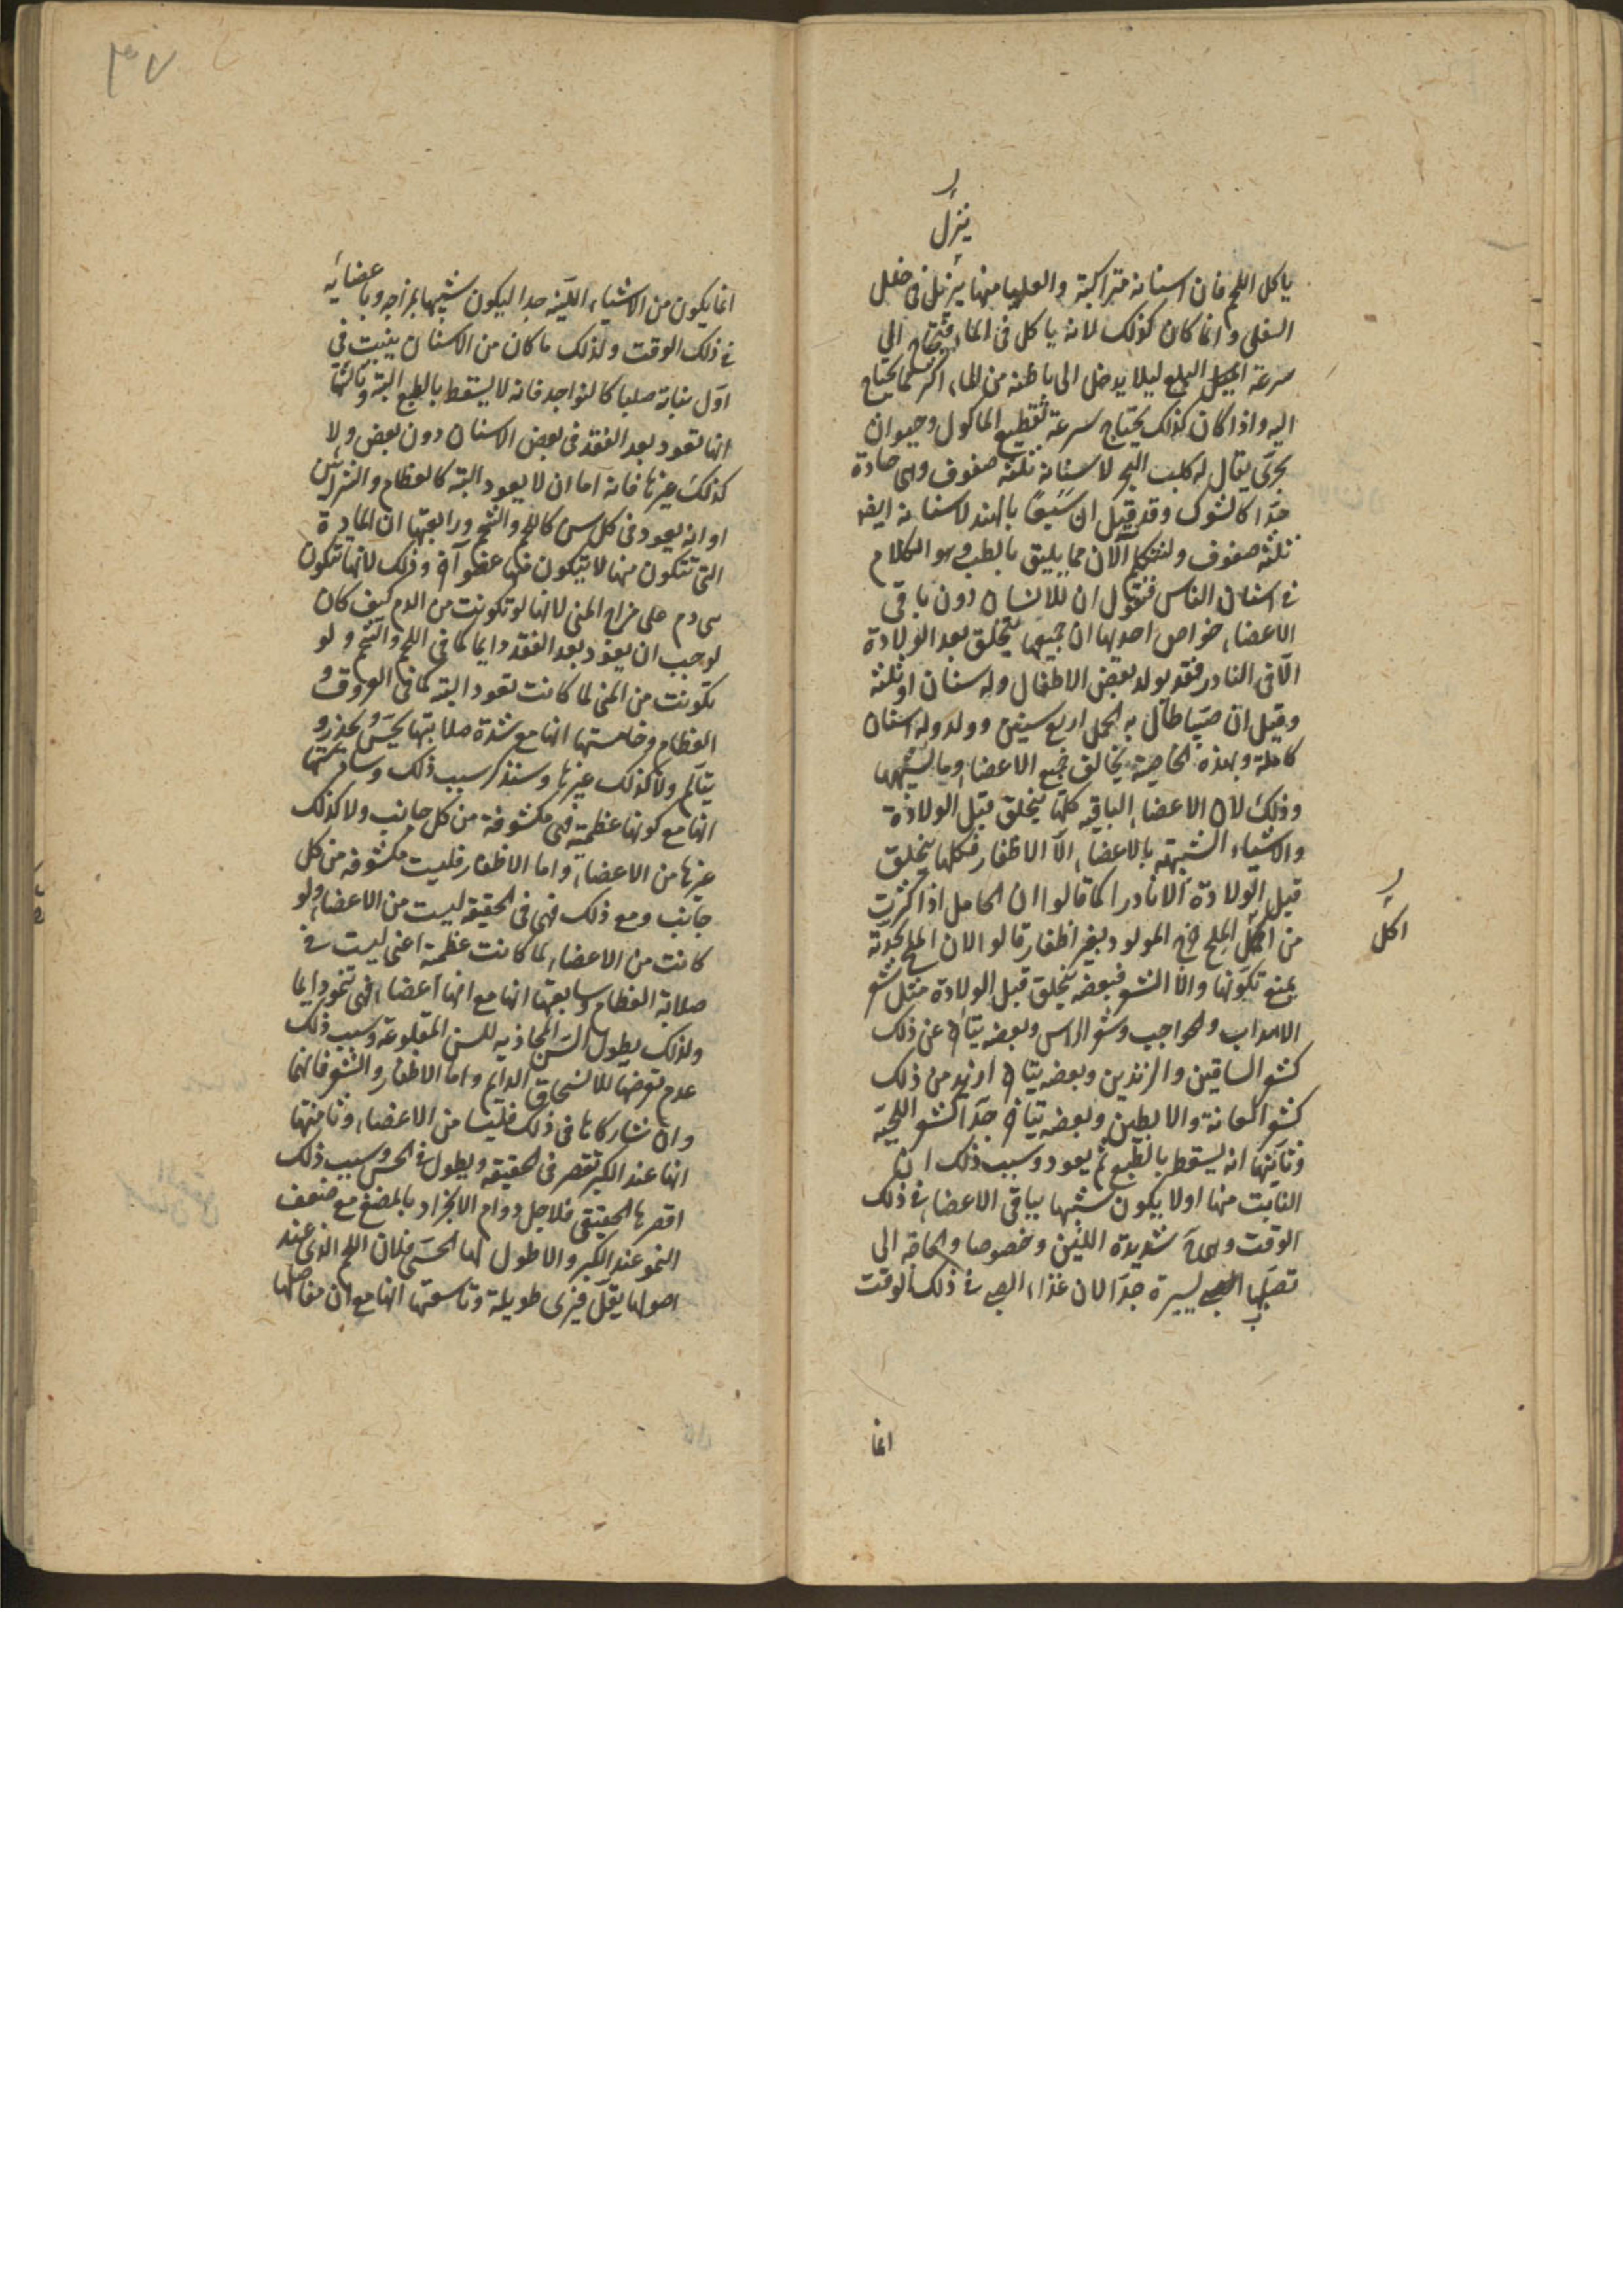 ر
ينزل
ياكل اللحم فان اسنانه متراكبة والعليا منها ينزل فى خلل
السفلى وانما كان كذلك لانه ياكل فى الماء فيحتاج الى
سرعة البلع ليلا يدخل الى باطنه من الماء اكثر مما يحتاج
اليه واذا كان كذلك يحتاج سرعة تقطيع الماكول وحيوان
بحرى يقال له كلب البحر لاسنانه ثلثة صفوف وهى حادة
جدا كالشوك وقد قيل ان سبعا بالهند لاسنانه ايضا
ثلثة صفوف ولنتكلم الآن مما يليق بالطب وهو الكلام
فى اسنان الناس فنقول ان للاسنان دون باقى
الاعضاء خواص احديها ان جميعها يتخلق بعد الولادة
الا فى النادر فقد يولد بعض الاطفال وله سنان او ثلثة
وقيل ان صبيا طال به الحمل اربع سنين وولد وله اسنان
كاملة وبهذه الخاصية يخالف جميع الاعضاء وما يشبهها
وذلك لان الاعضاء الباقيه كلها يتخلق قبل الولادة
والاشياء الشبيهة بالاعضاء الا الاظفار فكلها يتخلق
قبل الولادة الا نادرا كما قالوا ان الحامل اذا كثرت
من اكل الملح خرج المولود بغير اظفار قالوا لان الملح بحدته
يمنع تكونها والا الشعر فبعضه يتخلق قبل الولادة مثل شعر
الاهداب والحواجب وشعر الراس وبعضه يتاخر عن ذلك
كشعر الساقين والزندين وبعضه يتاخر ازيد من ذلك
كشعر العانة والابطين وبعضه يتاخر جدا كشعر اللحية
وثانيتها انه يسقط بالطبع ثم يعود وسبب ذلك ان
النابت منها اولا يكون شبيها بباقى الاعضاء فى ذلك
الوقت وهى شديدة اللين وخصوصا والحاجة الى
تصلبها يسيرة جدا لان غذاء الصبى فى ذلك الوقت
انما
ر
اكل
٣٧
انما يكون من الاشياء اللينه جدا ليكون شبيها بمزاجه وباعضائه
فى ذلك الوقت ولذلك ما كان من الاسنان ينبت فى
اول نباته صلبا كالنواجد فانه لا يسقط بالطبع البتة وثالثتها
انها تعود بعد الفقد فى بعض الاسنان دون بعض ولا
كذلك غيرها فانه اما ان لا يعود البته كالعظام والشرايين
او انه يعود فى كل سن كاللحم والشحم ورابعتها ان المادة
التى تتكون منها لا يتكون منها عضو آخر وذلك لانها تتكون
من دم على مزاج المنى لانها لو تكونت من الدم كيف كان
لوجب ان يعود بعد الفقد دايما كما فى اللحم والشحم ولو
تكونت من المنى لما كانت تعود البته كما فى العروق و
العظام وخامستها انها مع شدة صلابتها يحس ويخدر و
يتالم ولا كذلك غيرها وسنذكر سبب ذلك وسادستها
انها مع كونها عظمية فهى مكشوفة من كل جانب ولا كذلك
غيرها من الاعضاء واما الاظفار فليست مكشوفه من كل
جانب ومع ذلك فهى فى الحقيقه ليست من الاعضاء ولو
كانت من الاعضاء لما كانت عظمية اعنى ليست فى
صلابة العظام وسابعتها انها مع انها اعضاء فهى تنمو دايما
ولذلك يطول السن المحاذيه للسن المقلوعة وسبب ذلك
عدم تعرضها للانسحاق الدايم واما الاظفار والشعر فانهما
وان شاركاها فى ذلك فليسا من الاعضاء وثامنتها
انها عند الكبر تقصر فى الحقيقه ويطول فى الحس وسبب ذلك
اقصرها الحقيقى فلاجل دوام الانجراد بالمضغ مع ضعف
النمو عند الكبر والاطول لها الحسى فلان اللحم الذى عند
اصولها يقل فيرى طويلة وتاسعتها انها مع ان مفاصلها